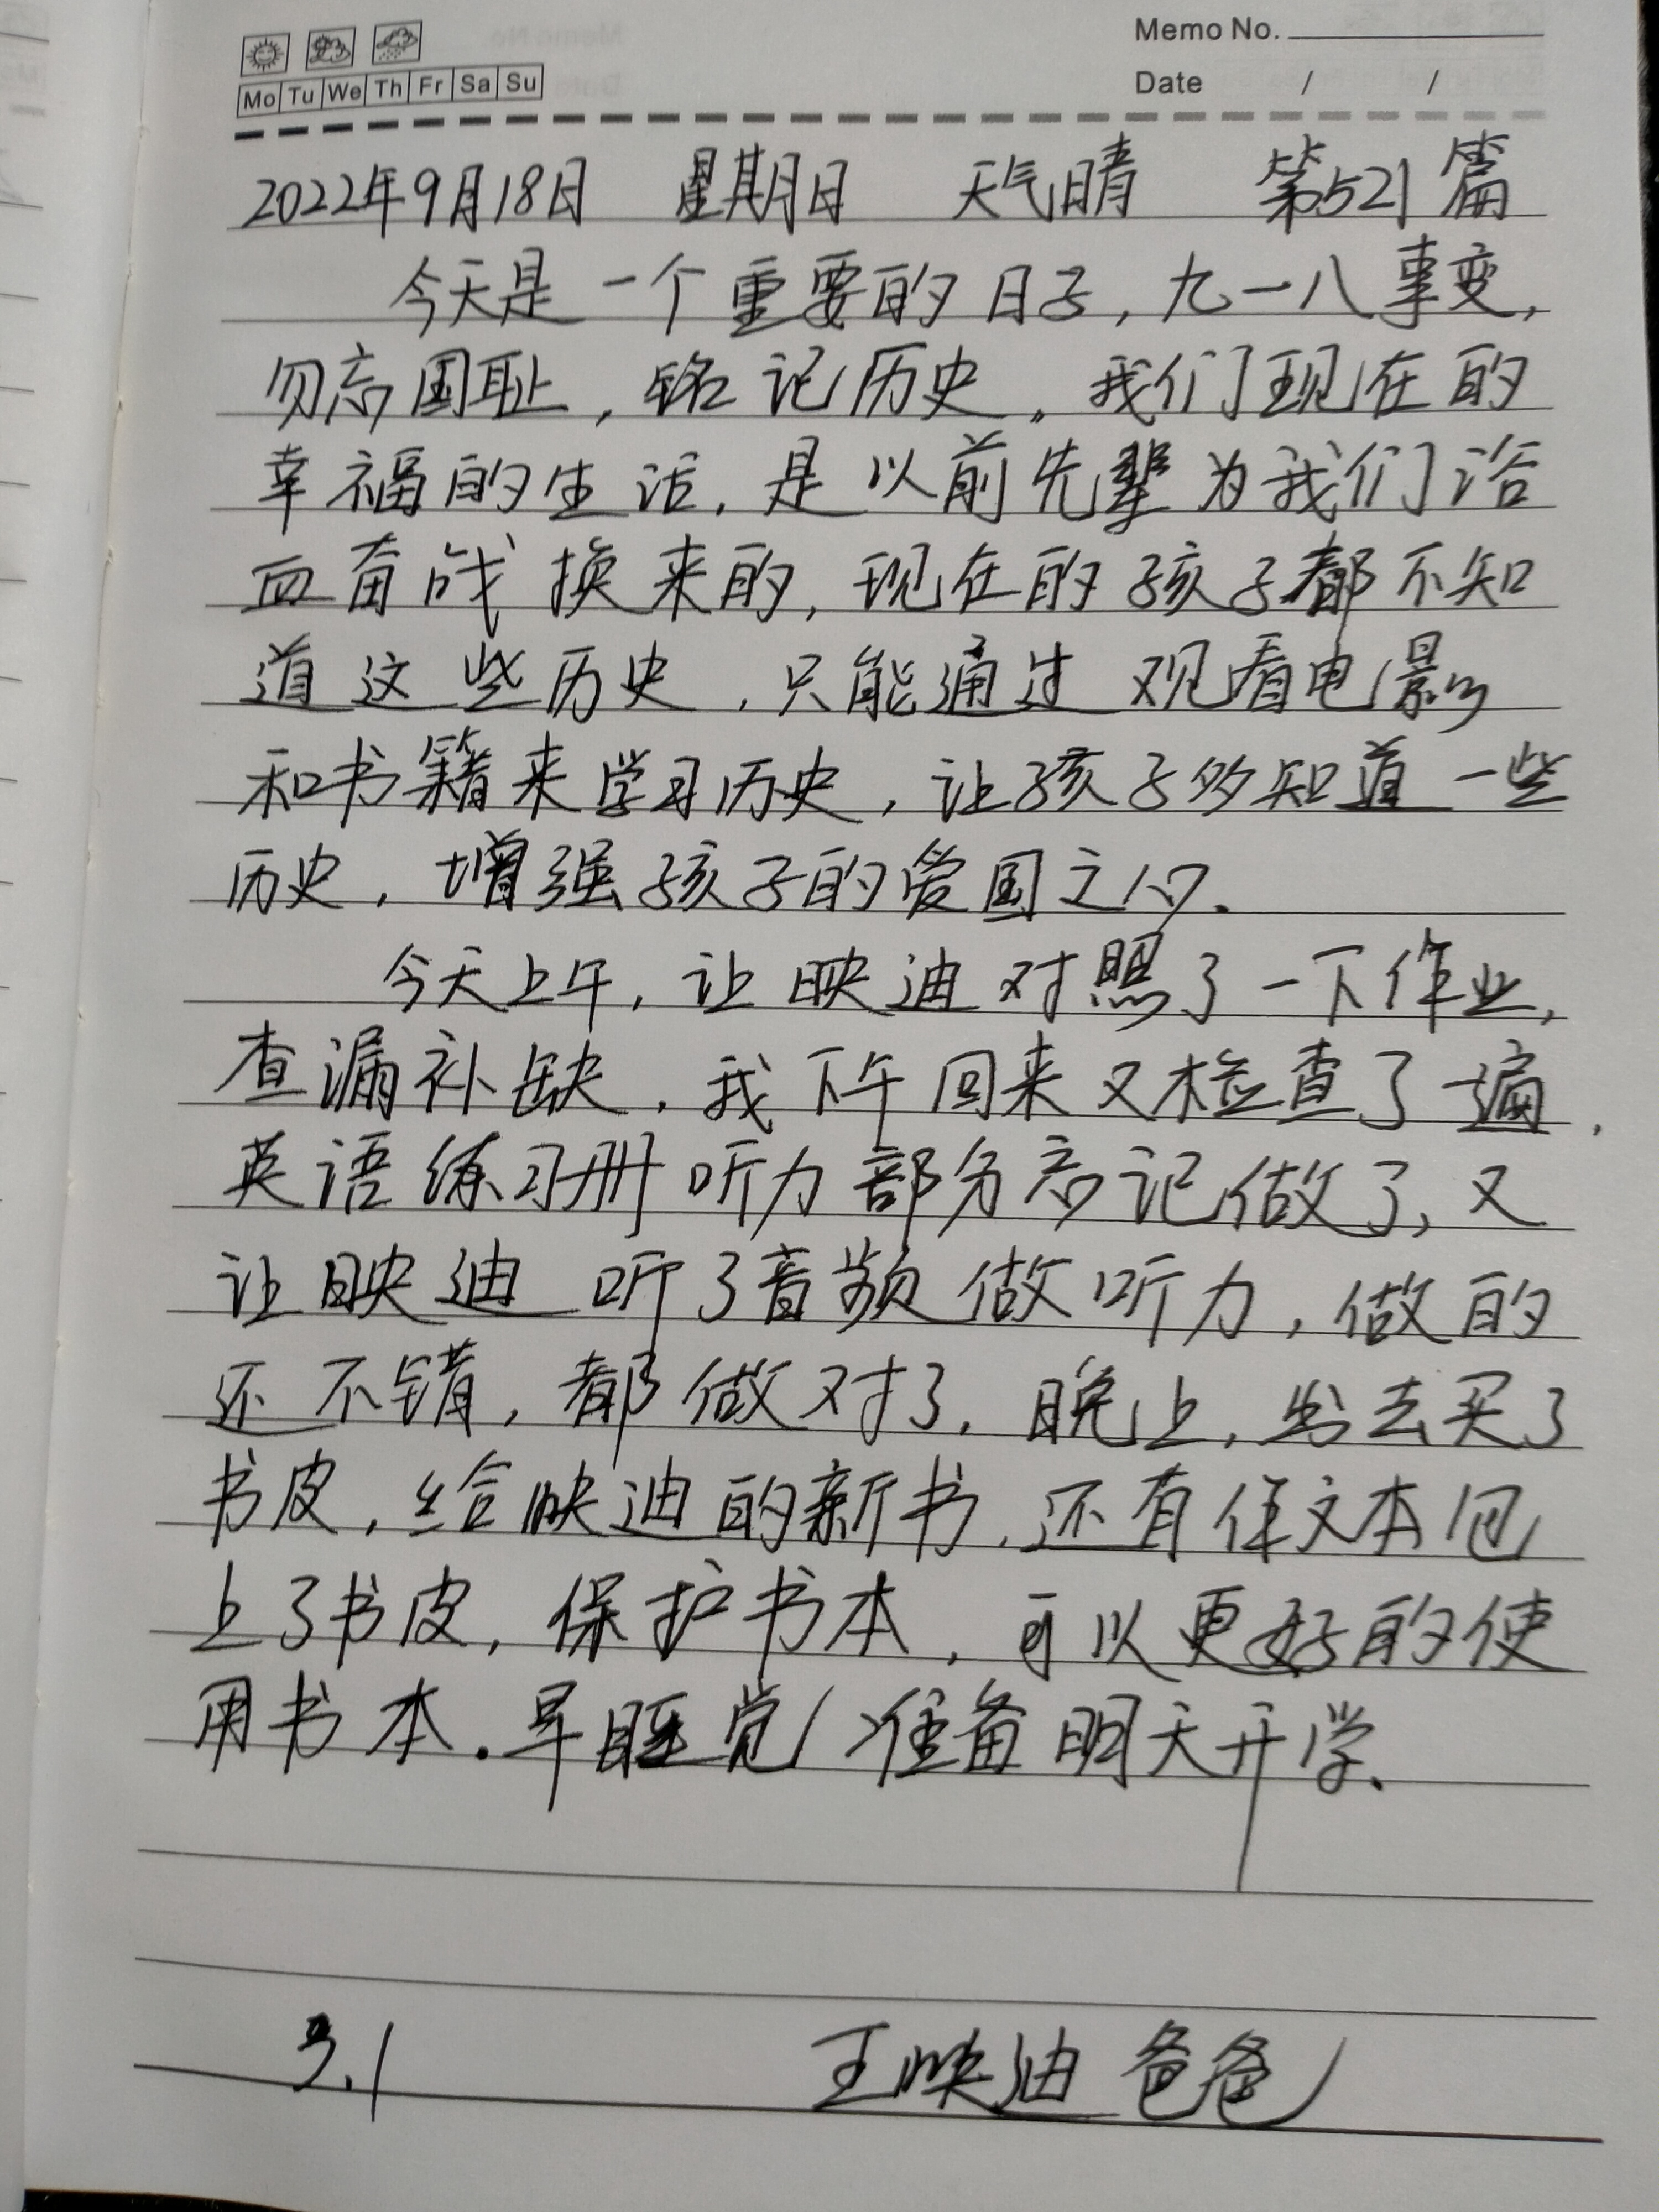 Memo No.
Mo Tu We Th Fr Sa Su
Date / /
2022年9月18日 星期日 天气晴 第521篇
今天是一个重要的日子,九一八事变,
勿忘国耻,铭记历史。我们现在的
幸福的生活,是以前先辈为我们浴
血奋战换来的,现在的孩子都不知
道这些历史,只能通过观看电影
和书籍来学习历史,让孩子多知道一些
历史,增强孩子的爱国之心.
今天上午,让映迪对照了一下作业,
查漏补缺,我下午回来又检查了一遍.
英语练习册听力部分忘记做了,又
让映迪听了音频做听力,做的
还不错,都做对了,晚上,出去买了
书皮,给映迪的新书,还有作文本包
上了书皮,保护书本,可以更好的使
用书本.早睡觉准备明天开学.
3.1 王映迪爸爸